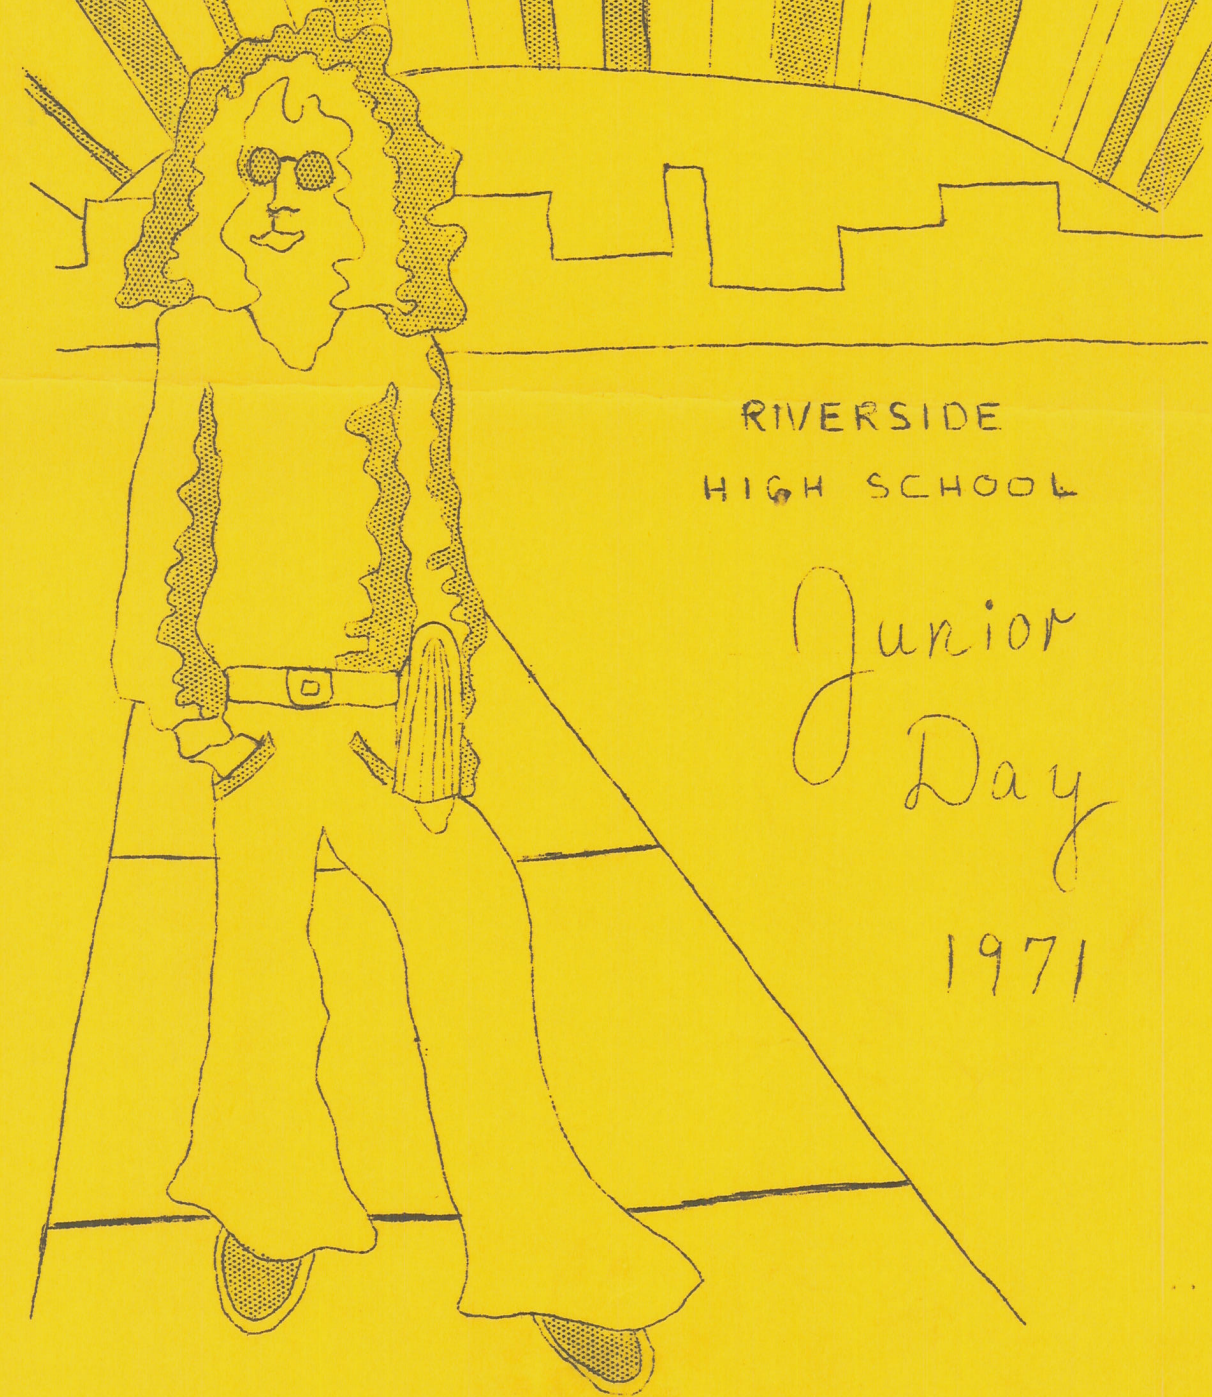 RIVERSIDE
HIGH SCHOOL
Junior
Day
1971